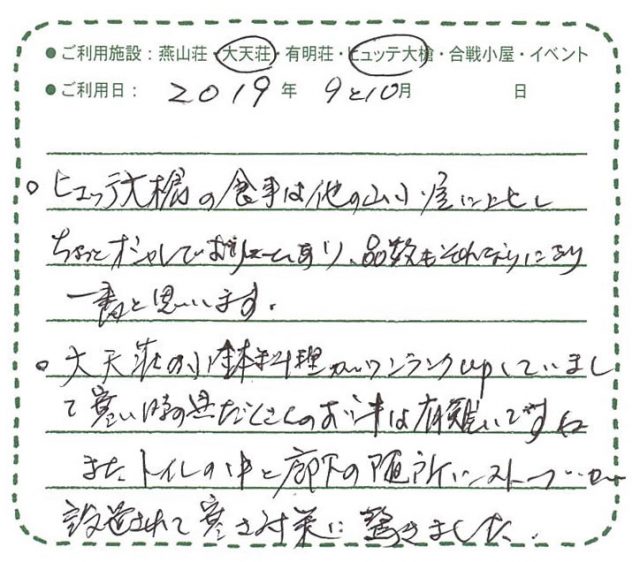 ●ご利用施設：燕山荘・大天荘・有明荘・ヒュッテ大槍・合戦小屋・イベント
●ご利用日： 2019 年 9と10月 日
○ヒュッテ大槍の食事は他の山小屋に比し
ちょっとオシャレでボリュームあり、品数もそれなりにあり
一番と思います。
○大天荘の小鉢料理がワンランクupしていまし
て寒い時の具だくさんのお汁は有難いですね
また トイレの中と廊下の随所にストーブが
設置されて寒さ対策に驚きました。